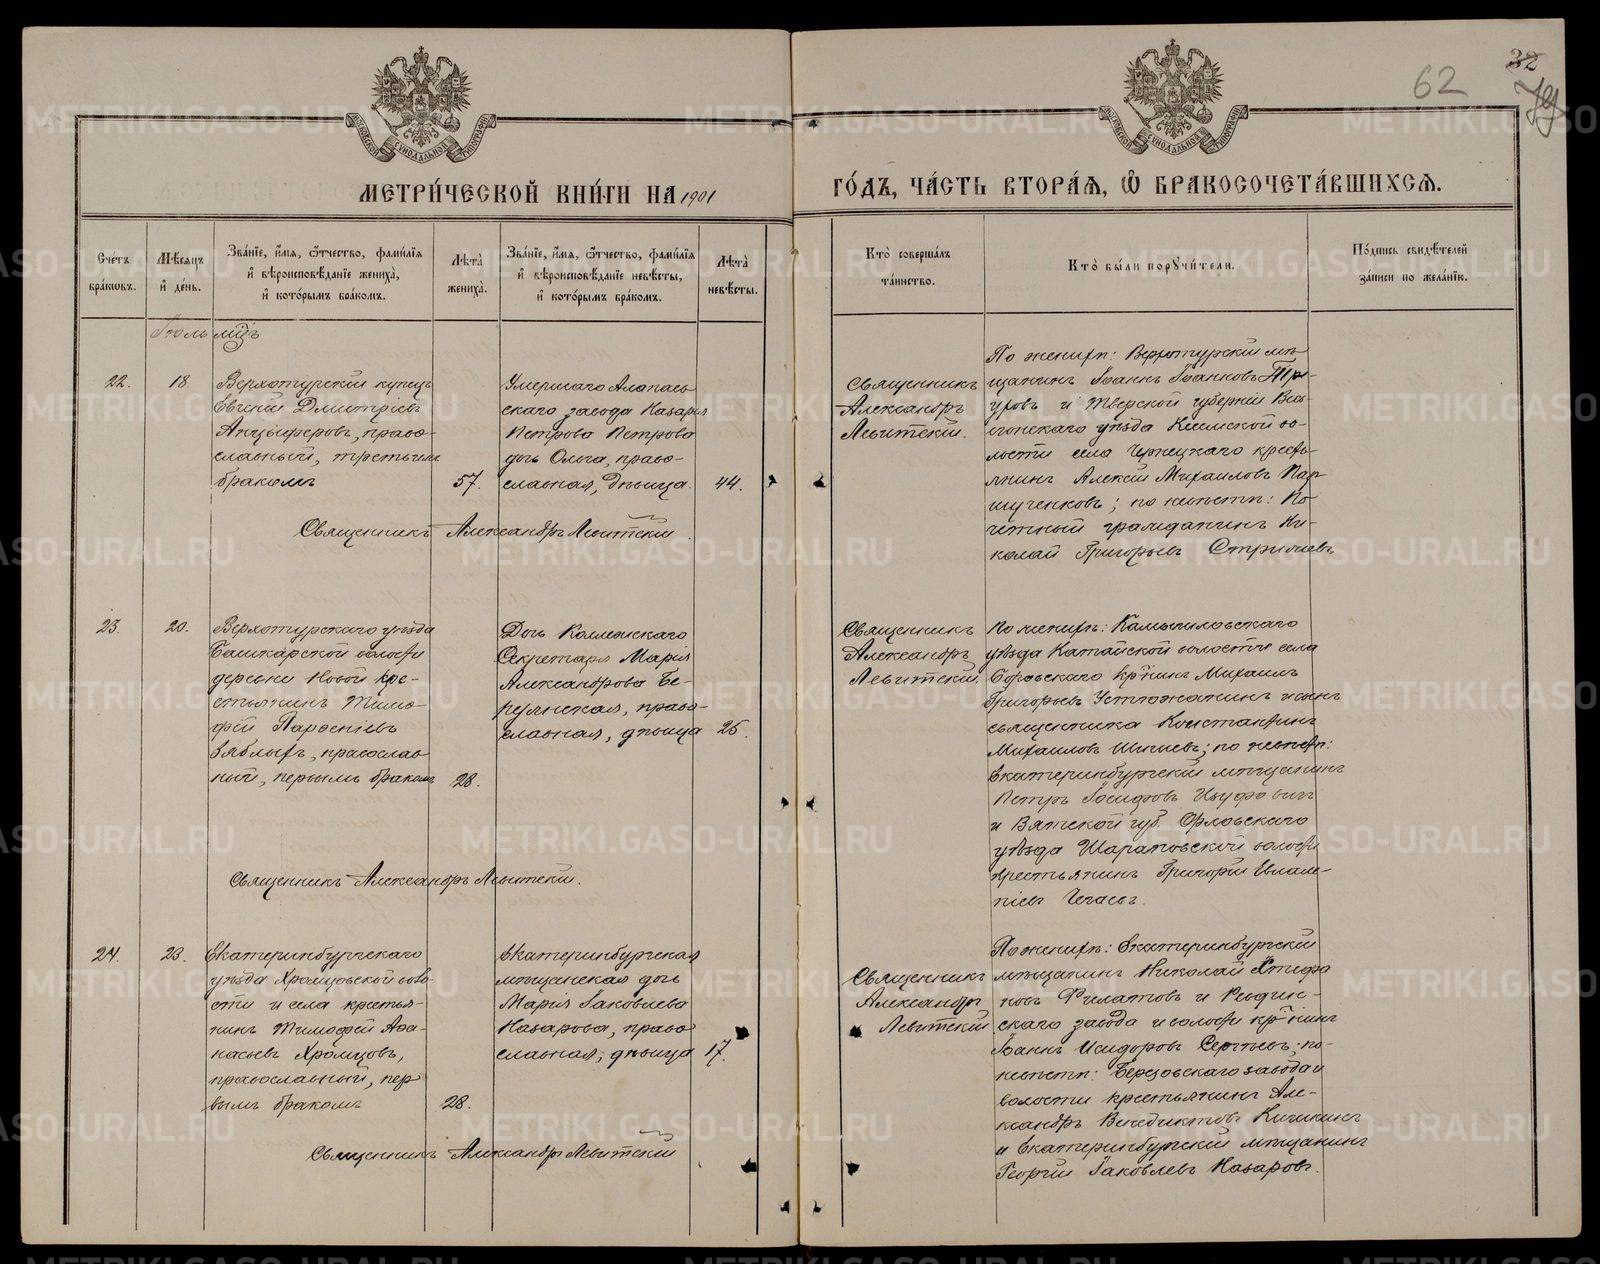 62
32
МЕТРИ́ЧЕСКОЙ КНИ́ГИ НА 1901
ГО́ДЪ, ЧА́СТЬ ВТОРА́Ѧ, Ѽ БРАКОСОЧЕТА́ВШИХСѦ.
Сче́тъ бра́кѡвъ.
Мѣ́сѧцъ и҆ де́нь.
Зва́нїе, и҆́мѧ, ѻ҆́тчество, фами́лїѧ
и҆ вѣроисповѣ́данїе жениха̀,
и҆ кото́рымъ бра́комъ.
Лѣ́та̀ жениха̀.
Зва́нїе, и҆́мѧ, ѻ҆́тчество, фами́лїѧ
и҆ вѣроисповѣ́данїе невѣ́сты,
и҆ кото́рымъ бра́комъ.
Лѣ́та̀ невѣ́сты.
Кто̀ соверша́лъ
та́инство.
Кто̀ бы́ли порꙋчи́тели.
По́дпись свидѣ́телей
за́писи по жела́нїю.
Іюль мцъ
22.
18.
Верхотурскій купецъ
Евгеній Дмитріевъ
Анцыферовъ, право-
славный, третьимъ
бракомъ
57.
Умершаго Алапаев-
скаго завода Назарія
Петрова Петрова
дочь Ольга, право-
славная, дѣвица.
44.
Священникъ
Александръ
Левитскій.
По женихѣ: Верхотурскій мѣ-
щанинъ Іоаннъ Іоанновъ
и Тверской губерніи
уѣзда Кесемской во-
лости села Чернецкаго кресть-
янинъ Алексѣй Михаиловъ Пар-
шученковъ; по невѣстѣ: По-
четный гражданинъ Ни-
колай Григорьевъ Стрижевъ
Священникъ Александръ Левитскій.
23.
20.
Верхотурскаго уѣзда
Башкарской волости
деревни Новой кре-
стьянинъ Тимо-
фей Парѳеніевъ
Зяблыхъ, православ-
ный, первымъ бракомъ
28.
Дочь Коллежскаго
Секретаря Марія
Александрова Бе-
ренская, право-
славная, дѣвица
25.
Священникъ
Александръ
Левитскій.
По женихѣ: Камышловскаго
уѣзда Катайской волости села
Боровскаго кр‑нинъ Михаилъ
Григорьевъ Устюжанинъ и сынъ
священника Константинъ
Михаиловъ Шишевъ; по невѣстѣ:
Екатеринбургскій мѣщанинъ
Петръ Іосифовъ
и Вятской губ. Орловскаго
уѣзда Шараповской волости
крестьянинъ Григорій Евлам-
піевъ
Священникъ Александръ Левитскій.
24.
23.
Екатеринбургскаго
уѣзда Храмцовской воло-
сти и села крестья-
нинъ Тимофей Аѳа-
насьевъ Храмцовъ,
православный, пер-
вымъ бракомъ
28.
Екатеринбургская
мѣщанская дочь
Марія Іаковлева
Назарова, право-
славная, дѣвица
17.
Священникъ
Александръ
Левитскій
По женихѣ: Екатеринбургскій
мѣщанинъ Николай
Филатовъ и Ревдин-
скаго завода и волости кр‑нинъ
Іоаннъ Исидоровъ Сергѣевъ; по
невѣстѣ: Березовскаго завода и
волости крестьянинъ Але-
ксандръ Венедиктовъ Кичигинъ
и Екатеринбургскій мѣщанинъ
Георгій Іаковлевъ Назаровъ.
Священникъ Александръ Левитскій
METRIKI.GASO-URAL.RU